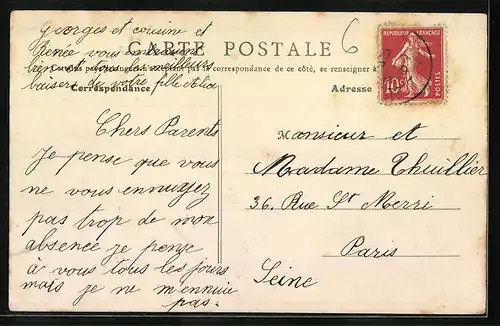 Georges et cousine et
Renée vous embrassent
bien et tous les meilleurs
baisers de votre fille
CARTE POSTALE
6
la correspondance de ce côté, se renseigner à
Correspondance
Adresse
RÉPUBLIQUE FRANÇAISE
10
POSTES
Chers Parents
Je pense que vous
ne vous ennuyez
pas trop de mon
absence je pense
à vous tous les jours
mais je ne m'ennuie
pas.
Monsieur et
Madame Thuillier
36, Rue St Merri
Paris
Seine